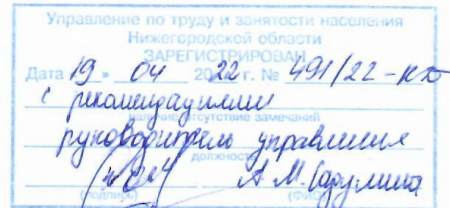 Управление по труду и занятости населения
Нижегородской области
ЗАРЕГИСТРИРОВАН
Дата 19 » 04 2022 г. № 491/22-КД
с рекомендациями
наличие/отсутствие замечаний
руководитель управления
должность
А.М.
(подпись) (ФИО)